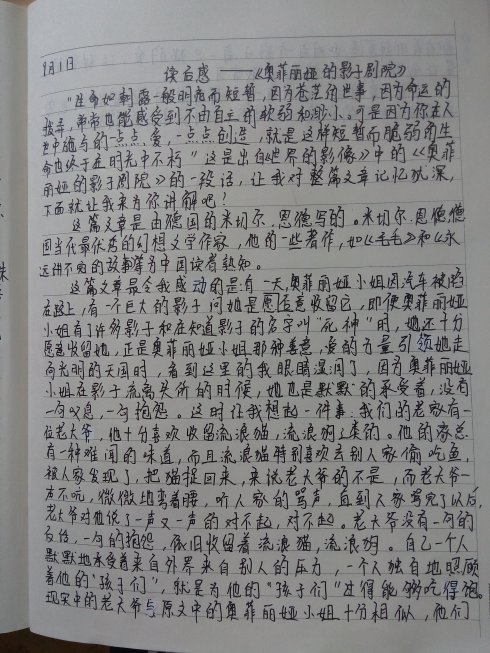 9月1日
读后感 ——《奥菲丽娅的影子剧院》
"生命如朝露一般明亮而短暂,因为苍茫的世事,因为命运的
拨弄,常常也能感受到不由自主的软弱和渺小。可是因为你在人
世中施与的一点点爱,一点点创造,就是这样短暂而脆弱的生
命也终于在明光中不朽"这是出自《世界的影像》中的《奥菲
丽娅的影子剧院》的一段话,让我对整篇文章记忆犹深,
下面就让我来为你讲解吧!
这篇文章是由德国的米切尔.恩德写的。米切尔.恩德德
国当代最优秀的幻想文学作家,他的一些著作,如《毛毛》和《永
远讲不完的故事》等为中国读者熟知。
这篇文章最令我感动的是:有一天,奥菲丽娅小姐因汽车被
在路上,有一个巨大的影子问她是愿意收留它,即使奥菲丽娅
小姐有了许多影子和在知道影子的名字叫"死神"时,她还十分
愿意收留她,正是奥菲丽娅小姐那种善意,爱的力量引领她走
向光明的天国时,看到这里的我眼睛湿润了,因为奥菲丽娅
小姐在影子流离失所的时候,她也是默默的承受着,没有
一句叹息,一句抱怨。这时让我想起一件事:我们的老家有一
位老大爷,他十分喜欢收留流浪猫,流浪狗之类的。他的家总
有一种难闻的味道,而且流浪猫特别喜欢去别人家偷吃鱼,
被人家发现了,把猫捉回来,来说老大爷的不是,而老大爷一
声不吭,微微地弯着腰,听人家的骂声,直到人家骂完了以后,
老大爷对他说了一声又一声的对不起,对不起。老大爷没有一句的
,一句的抱怨,依旧收留着流浪猫,流浪狗。自己一个人
默默地承受着来自外界来自别人的压力,一个人独自地照顾
着他的"孩子们",就是为他的"孩子们"过得能够吃得饱。
现实中的老大爷与原文中的奥菲丽娅小姐十分相似,他们